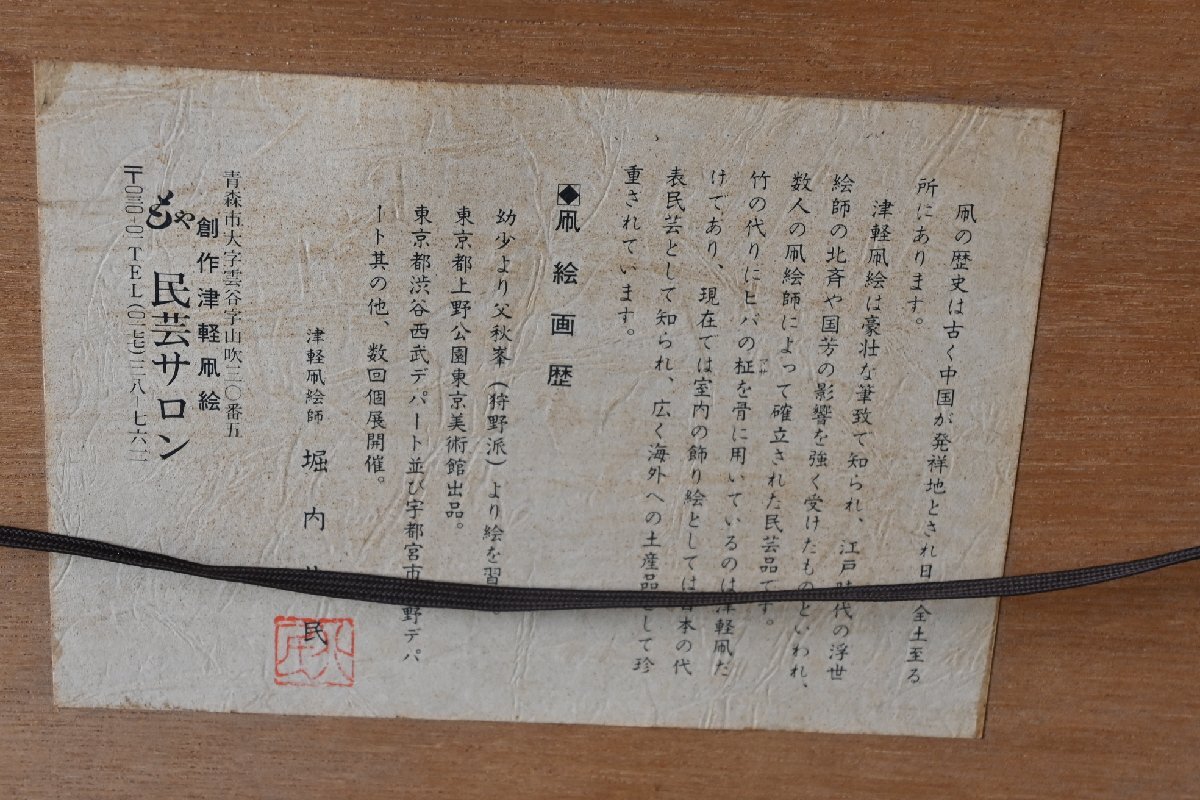 凧の歴史は古く中国が発祥地とされ日 全土至る
所にあります。
津軽凧絵は豪壮な筆致で知られ、江戸時代の浮世
絵師の北斉や国芳の影響を強く受けたものといわれ、
数人の凧絵師によって確立された民芸品です。
竹の代りにヒバの柾を骨に用いているのは津軽凧だ
けであり、現在では室内の飾り絵としては日本の代
表民芸として知られ、広く海外への土産品として珍
重されています。
◆凧絵画歴
幼少より父秋峯(狩野派)より絵を習
東京都上野公園東京美術館出品。
東京都渋谷西武デパート並び宇都宮市 野デパ
ート其の他、数回個展開催。
津軽凧絵師 堀内 民
創作津軽凧絵
もや 民芸サロン
青森市大字雲谷字山吹三〇番五